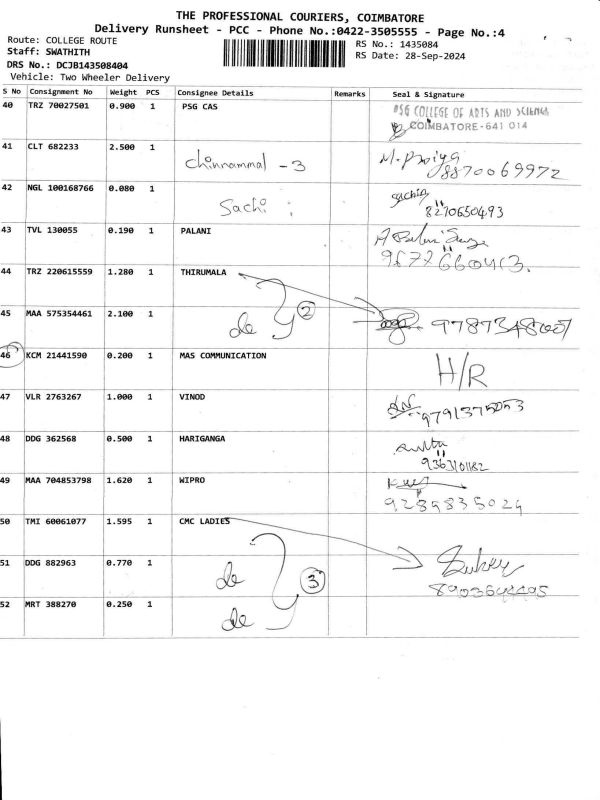 THE PROFESSIONAL COURIERS, COIMBATORE
Delivery Runsheet - PCC - Phone No.:0422-3505555 - Page No.:4
Route: COLLEGE ROUTE
RS No.: 1435084
Staff: SWATHITH
RS Date: 28-Sep-2024
DRS No.: DCJB143508404
Vehicle: Two Wheeler Delivery
S No Consignment No Weight PCS Consignee Details Remarks Seal & Signature
40 TRZ 70027501 0.900 1 PSG CAS
PSG COLLEGE OF ARTS AND SCIENCE
COIMBATORE-641 014
41 CLT 682233 2.500 1 Chinnammal - 3 M. Priya
8870069972
42 NGL 100168766 0.080 1 Sachi : Sachin
8270650493
43 TVL 130055 0.190 1 PALANI
44 TRZ 220615559 1.280 1 THIRUMALA
45 MAA 575354461 2.100 1 de 2
46 KCM 21441590 0.200 1 MAS COMMUNICATION H/R
47 VLR 2763267 1.000 1 VINOD
9791375053
48 DDG 362568 0.500 1 HARIGANGA
9363101182
49 MAA 704853798 1.620 1 WIPRO
9289835024
50 TMI 60061077 1.595 1 CMC LADIES
51 DDG 882963 0.770 1 de 3
52 MRT 388270 0.250 1 de